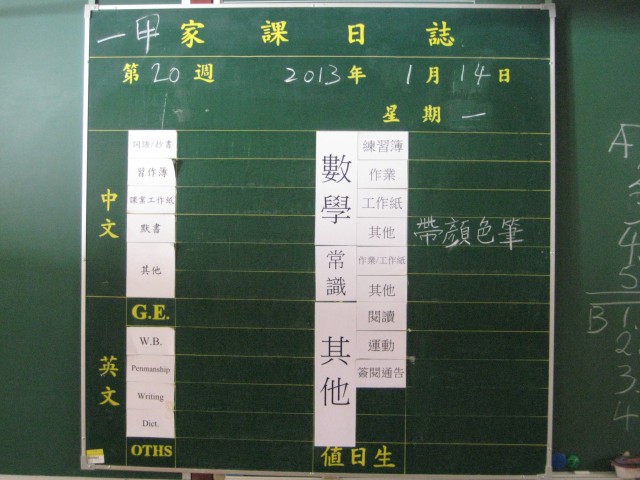 一甲家課日誌
第20週 2013年 1月14日
星期一
中文
詞語/抄書
習作簿
課業工作紙
默書
其他
英文
G.E.
W.B.
Penmanship
Writing
Dict.
OTHS
數學
練習簿
作業
工作紙
其他 帶顏色筆
常識
作業/工作紙
其他
其他
閱讀
運動
簽閱通告
值日生
A
B 1
2
3
4